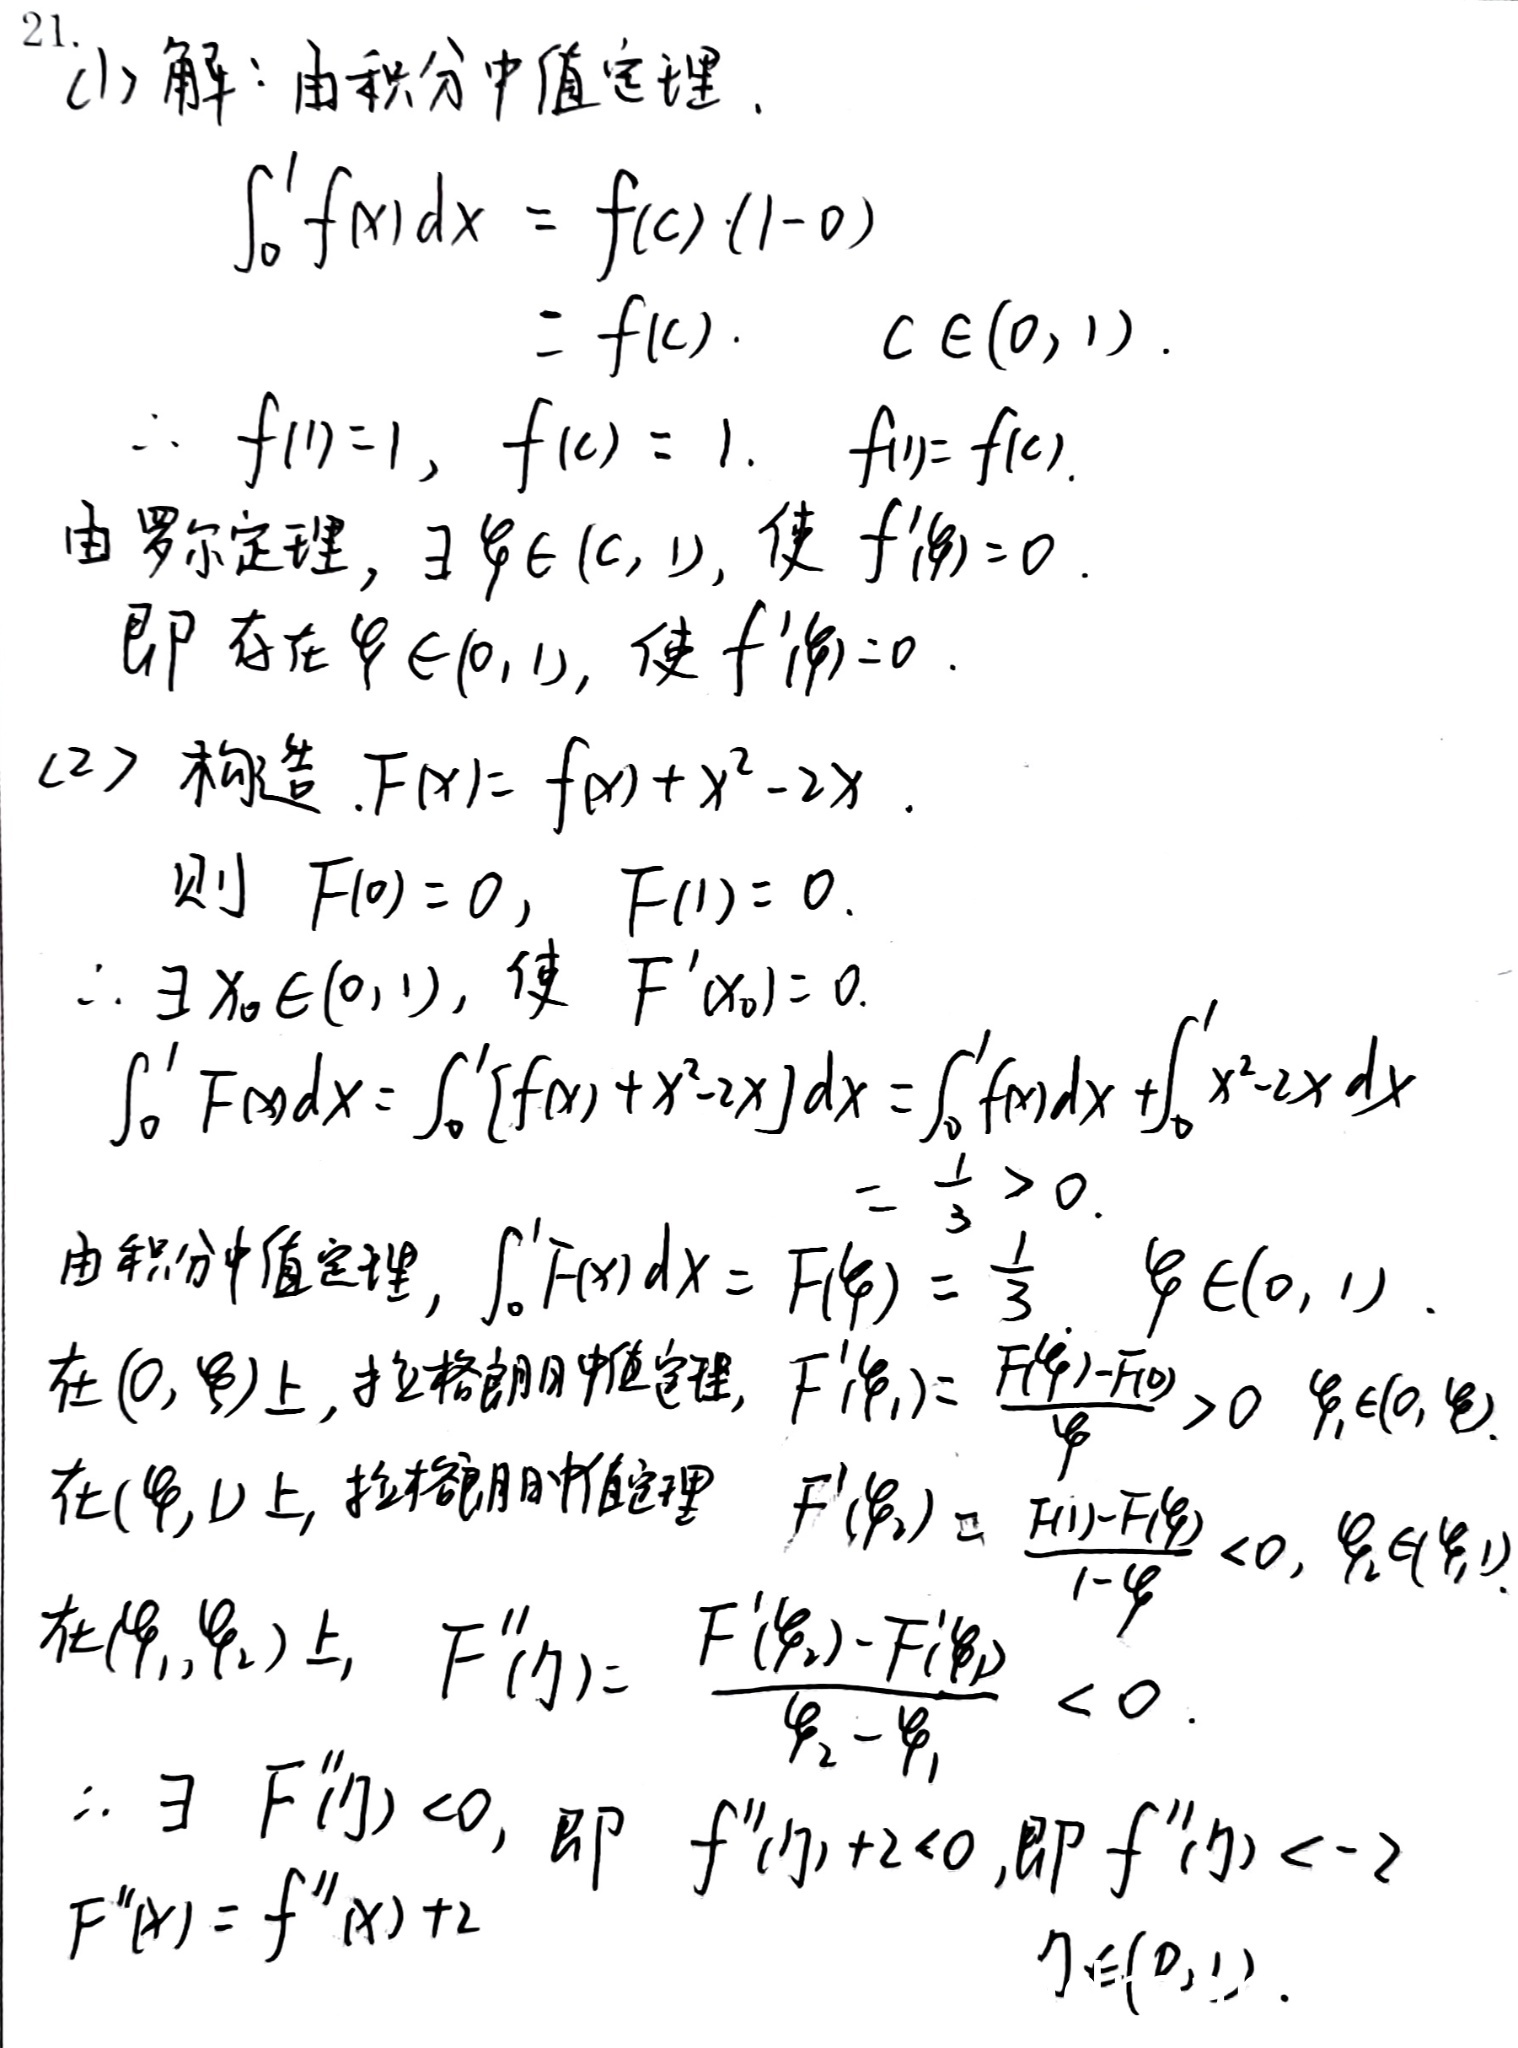 21.
(1) 解：由积分中值定理.
∫₀¹ f(x)dx = f(c)·(1-0)
= f(c). c∈(0,1).
∴ f(1)=1, f(c)=1. f(1)=f(c).
由罗尔定理, ∃ξ∈(c,1), 使 f'(ξ)=0.
即 存在 ξ∈(0,1), 使 f'(ξ)=0.
(2) 构造.F(x)= f(x)+x²-2x.
则 F(0)=0, F(1)=0.
∴ ∃x₀∈(0,1), 使 F'(x₀)=0.
∫₀¹ F(x)dx=∫₀¹[f(x)+x²-2x]dx=∫₀¹f(x)dx+∫₀¹x²-2x dx
= 1/3 > 0.
由积分中值定理, ∫₀¹F(x)dx=F(ξ)=1/3. ξ∈(0,1).
在(0,ξ)上,拉格朗日中值定理, F'(ξ₁)=(F(ξ)-F(0))/ξ >0 ξ₁∈(0,ξ).
在(ξ,1)上,拉格朗日中值定理 F'(ξ₂)=(F(1)-F(ξ))/(1-ξ) <0, ξ₂∈(ξ,1).
在(ξ₁,ξ₂)上, F''(η)=(F'(ξ₂)-F'(ξ₁))/(ξ₂-ξ₁) <0.
∴ ∃ F''(η)<0, 即 f''(η)+2<0,即 f''(η)<-2
F''(x)=f''(x)+2
η∈(0,1).